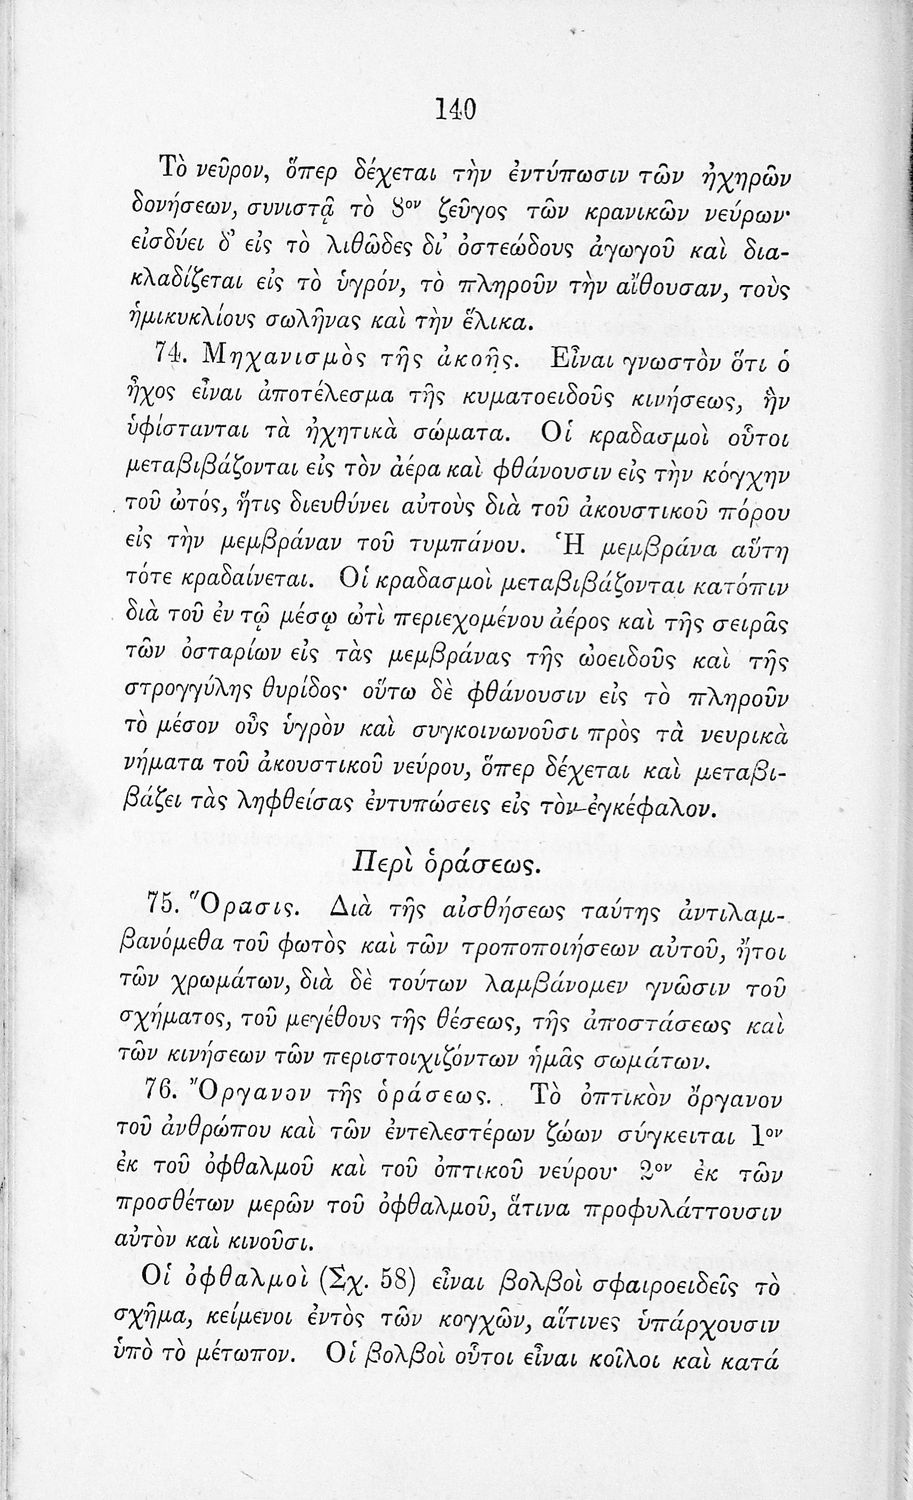 140
Τὸ νεῦρον, ὅπερ δέχεται τὴν ἐντύπωσιν τῶν ἠχηρῶν
δονήσεων, συνιστᾷ τὸ 8ον ζεῦγος τῶν κρανικῶν νεύρων·
εἰσδύει δ' εἰς τὸ λιθῶδες δι' ὀστεώδους ἀγωγοῦ καὶ δια-
κλαδίζεται εἰς τὸ ὑγρόν, τὸ πληροῦν τὴν αἴθουσαν, τοὺς
ἡμικυκλίους σωλῆνας καὶ τὴν ἕλικα.
74. Μηχανισμὸς τῆς ἀκοῆς. Εἶναι γνωστὸν ὅτι ὁ
ἦχος εἶναι ἀποτέλεσμα τῆς κυματοειδοῦς κινήσεως, ἣν
ὑφίστανται τὰ ἠχητικὰ σώματα. Οἱ κραδασμοὶ οὗτοι
μεταβιβάζονται εἰς τὸν ἀέρα καὶ φθάνουσιν εἰς τὴν κόγχην
τοῦ ὠτός, ἥτις διευθύνει αὐτοὺς διὰ τοῦ ἀκουστικοῦ πόρου
εἰς τὴν μεμβράναν τοῦ τυμπάνου. Ἡ μεμβράνα αὕτη
τότε κραδαίνεται. Οἱ κραδασμοὶ μεταβιβάζονται κατόπιν
διὰ τοῦ ἐν τῷ μέσῳ ὠτὶ περιεχομένου ἀέρος καὶ τῆς σειρᾶς
τῶν ὀσταρίων εἰς τὰς μεμβράνας τῆς ὠοειδοῦς καὶ τῆς
στρογγύλης θυρίδος· οὕτω δὲ φθάνουσιν εἰς τὸ πληροῦν
τὸ μέσον οὖς ὑγρὸν καὶ συγκοινωνοῦσι πρὸς τὰ νευρικὰ
νήματα τοῦ ἀκουστικοῦ νεύρου, ὅπερ δέχεται καὶ μεταβι-
βάζει τὰς ληφθείσας ἐντυπώσεις εἰς τὸν ἐγκέφαλον.
Περὶ ὁράσεως.
75. Ὅρασις. Διὰ τῆς αἰσθήσεως ταύτης ἀντιλαμ-
βανόμεθα τοῦ φωτὸς καὶ τῶν τροποποιήσεων αὐτοῦ, ἤτοι
τῶν χρωμάτων, διὰ δὲ τούτων λαμβάνομεν γνῶσιν τοῦ
σχήματος, τοῦ μεγέθους τῆς θέσεως, τῆς ἀποστάσεως καὶ
τῶν κινήσεων τῶν περιστοιχιζόντων ἡμᾶς σωμάτων.
76. Ὄργανον τῆς ὁράσεως. Τὸ ὀπτικὸν ὄργανον
τοῦ ἀνθρώπου καὶ τῶν ἐντελεστέρων ζώων σύγκειται 1ον
ἐκ τοῦ ὀφθαλμοῦ καὶ τοῦ ὀπτικοῦ νεύρου· 2ον ἐκ τῶν
προσθέτων μερῶν τοῦ ὀφθαλμοῦ, ἅτινα προφυλάττουσιν
αὐτὸν καὶ κινοῦσι.
Οἱ ὀφθαλμοὶ (Σχ. 58) εἶναι βολβοὶ σφαιροειδεῖς τὸ
σχῆμα, κείμενοι ἐντὸς τῶν κογχῶν, αἵτινες ὑπάρχουσιν
ὑπὸ τὸ μέτωπον. Οἱ βολβοὶ οὗτοι εἶναι κοῖλοι καὶ κατά